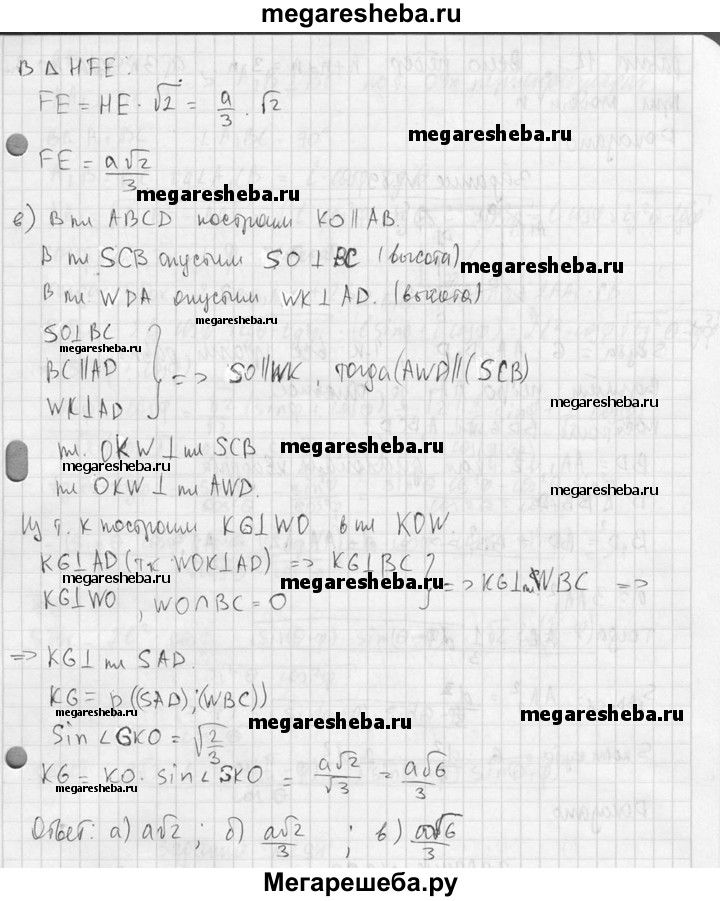 megaresheba.ru
В Δ HFE:
FE = HE · √2 = a/3 · √2
megaresheba.ru
FE = a√2/3
megaresheba.ru
в) В пл ABCD построим KO ∥ AB
В пл SCB опустим SO ⊥ BC (высота)
megaresheba.ru
В пл WDA опустим WK ⊥ AD. (высота)
megaresheba.ru
SO ⊥ BC
megaresheba.ru
BC ∥ AD } => SO ∥ WK, тогда (AWD) ∥ (SCB)
WK ⊥ AD
megaresheba.ru
пл. OKW ⊥ пл SCB
megaresheba.ru
megaresheba.ru
пл OKW ⊥ пл AWD.
megaresheba.ru
Из т. K построим KG ⊥ WO в пл KOW.
KG ⊥ AD (тк WOK ⊥ AD) => KG ⊥ BC
megaresheba.ru
megaresheba.ru
KG ⊥ WO, WO ∩ BC = O } => KG ⊥ пл WBC =>
=> KG ⊥ пл SAD.
KG = ρ((SAD);(WBC))
megaresheba.ru
megaresheba.ru
megaresheba.ru
Sin ∠GKO = √2/3
KG = KO · sin ∠SKO = a√2/√3 = a√6/3
megaresheba.ru
Ответ: а) a√2; б) a√2/3; в) a√6/3
Мегарешеба.ру